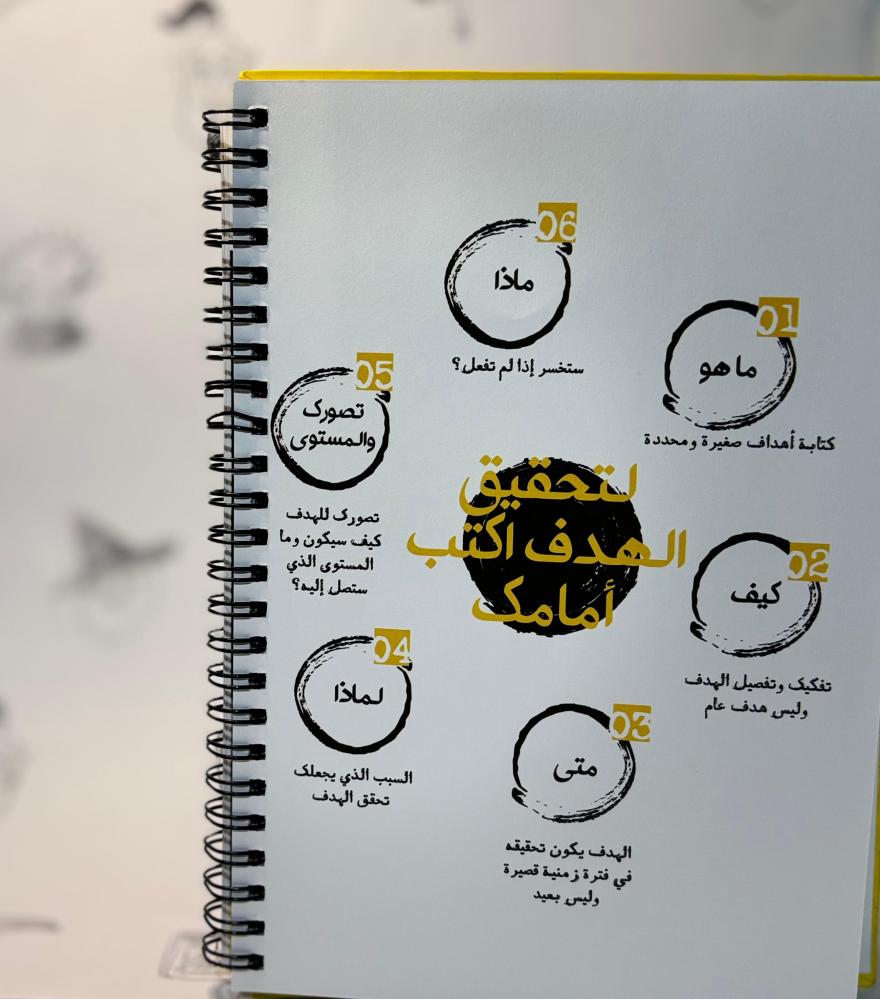 لتحقيق
الهدف اكتب
أمامك
01
ما هو
كتابة أهداف صغيرة ومحددة
02
كيف
تفكيك وتفصيل الهدف
وليس هدف عام
03
متى
الهدف يكون تحقيقه
في فترة زمنية قصيرة
وليس بعيد
04
لماذا
السبب الذي يجعلك
تحقق الهدف
05
تصورك
والمستوى
تصورك للهدف
كيف سيكون وما
المستوى الذي
ستصل إليه؟
06
ماذا
ستخسر إذا لم تفعل؟